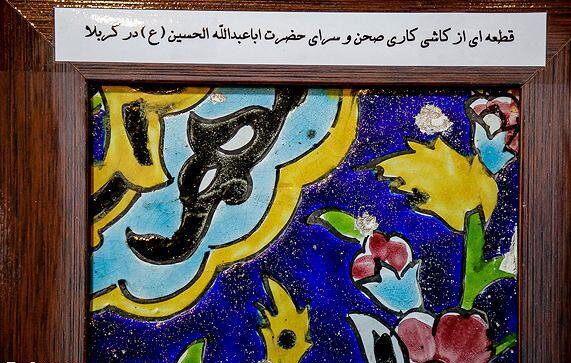 قطعه ای از کاشی کاری صحن و سرای حضرت اباعبدالله الحسین (ع) در کربلا